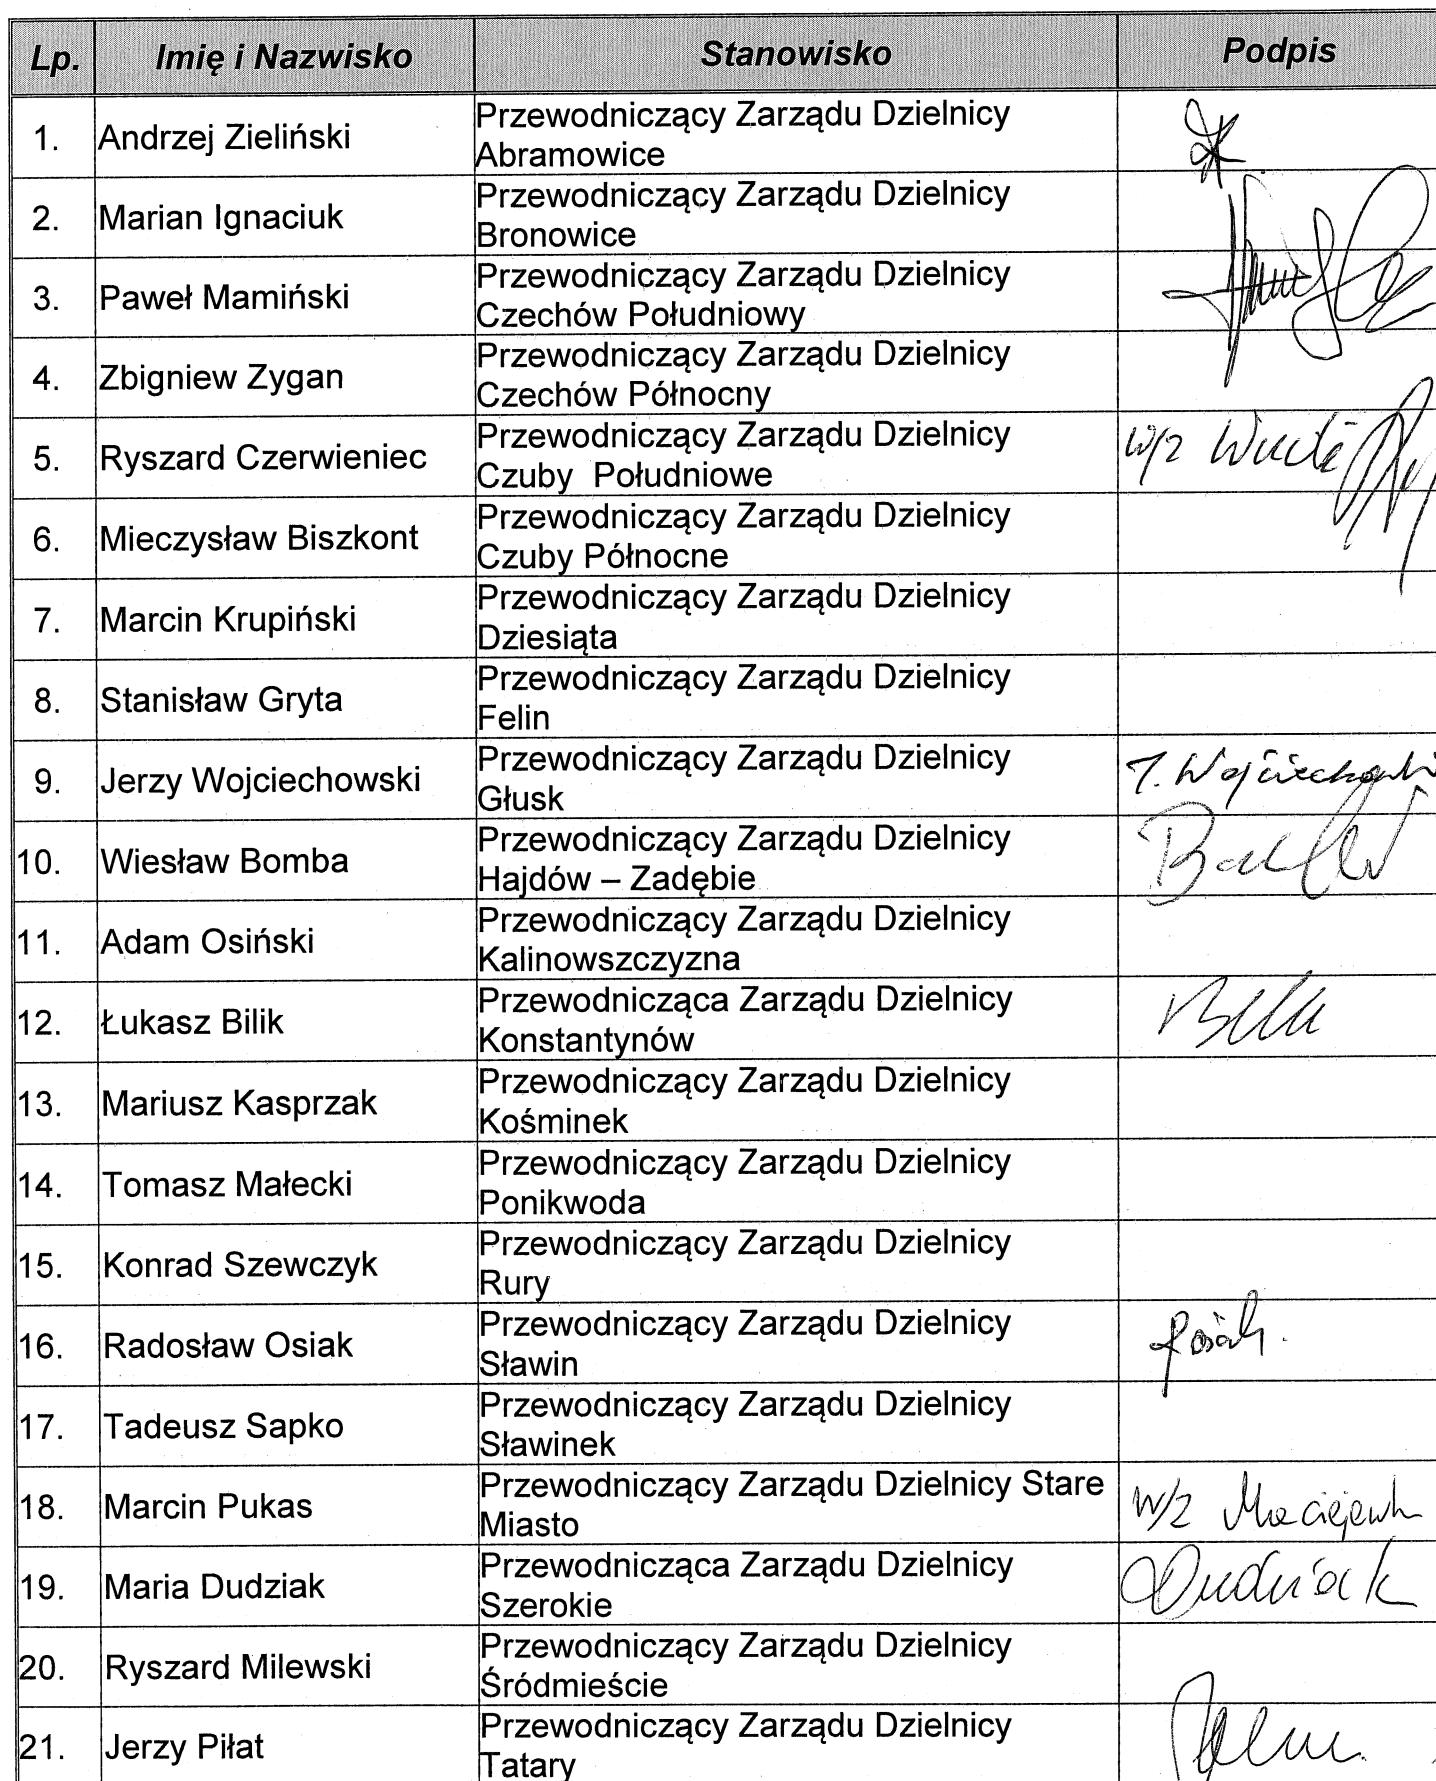 Lp. Imię i Nazwisko Stanowisko Podpis
1. Andrzej Zieliński Przewodniczący Zarządu Dzielnicy
Abramowice
2. Marian Ignaciuk Przewodniczący Zarządu Dzielnicy
Bronowice
3. Paweł Mamiński Przewodniczący Zarządu Dzielnicy
Czechów Południowy
4. Zbigniew Zygan Przewodniczący Zarządu Dzielnicy
Czechów Północny
5. Ryszard Czerwieniec Przewodniczący Zarządu Dzielnicy w/z
Czuby Południowe
6. Mieczysław Biszkont Przewodniczący Zarządu Dzielnicy
Czuby Północne
7. Marcin Krupiński Przewodniczący Zarządu Dzielnicy
Dziesiąta
8. Stanisław Gryta Przewodniczący Zarządu Dzielnicy
Felin
9. Jerzy Wojciechowski Przewodniczący Zarządu Dzielnicy J. Wojciechowski
Głusk
10. Wiesław Bomba Przewodniczący Zarządu Dzielnicy
Hajdów – Zadębie
11. Adam Osiński Przewodniczący Zarządu Dzielnicy
Kalinowszczyzna
12. Łukasz Bilik Przewodnicząca Zarządu Dzielnicy
Konstantynów
13. Mariusz Kasprzak Przewodniczący Zarządu Dzielnicy
Kośminek
14. Tomasz Małecki Przewodniczący Zarządu Dzielnicy
Ponikwoda
15. Konrad Szewczyk Przewodniczący Zarządu Dzielnicy
Rury
16. Radosław Osiak Przewodniczący Zarządu Dzielnicy
Sławin
17. Tadeusz Sapko Przewodniczący Zarządu Dzielnicy
Sławinek
18. Marcin Pukas Przewodniczący Zarządu Dzielnicy Stare w/z
Miasto
19. Maria Dudziak Przewodnicząca Zarządu Dzielnicy Dudziak
Szerokie
20. Ryszard Milewski Przewodniczący Zarządu Dzielnicy
Śródmieście
21. Jerzy Piłat Przewodniczący Zarządu Dzielnicy
Tatary